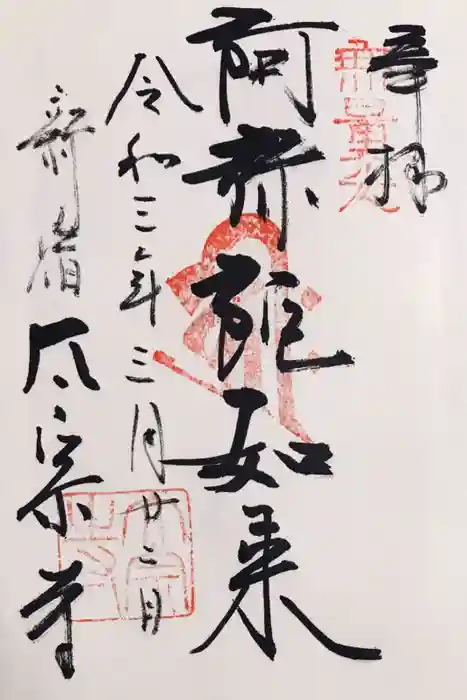 奉拝
阿弥陀如来
令和三年三月廿二日
新宿 太宗寺